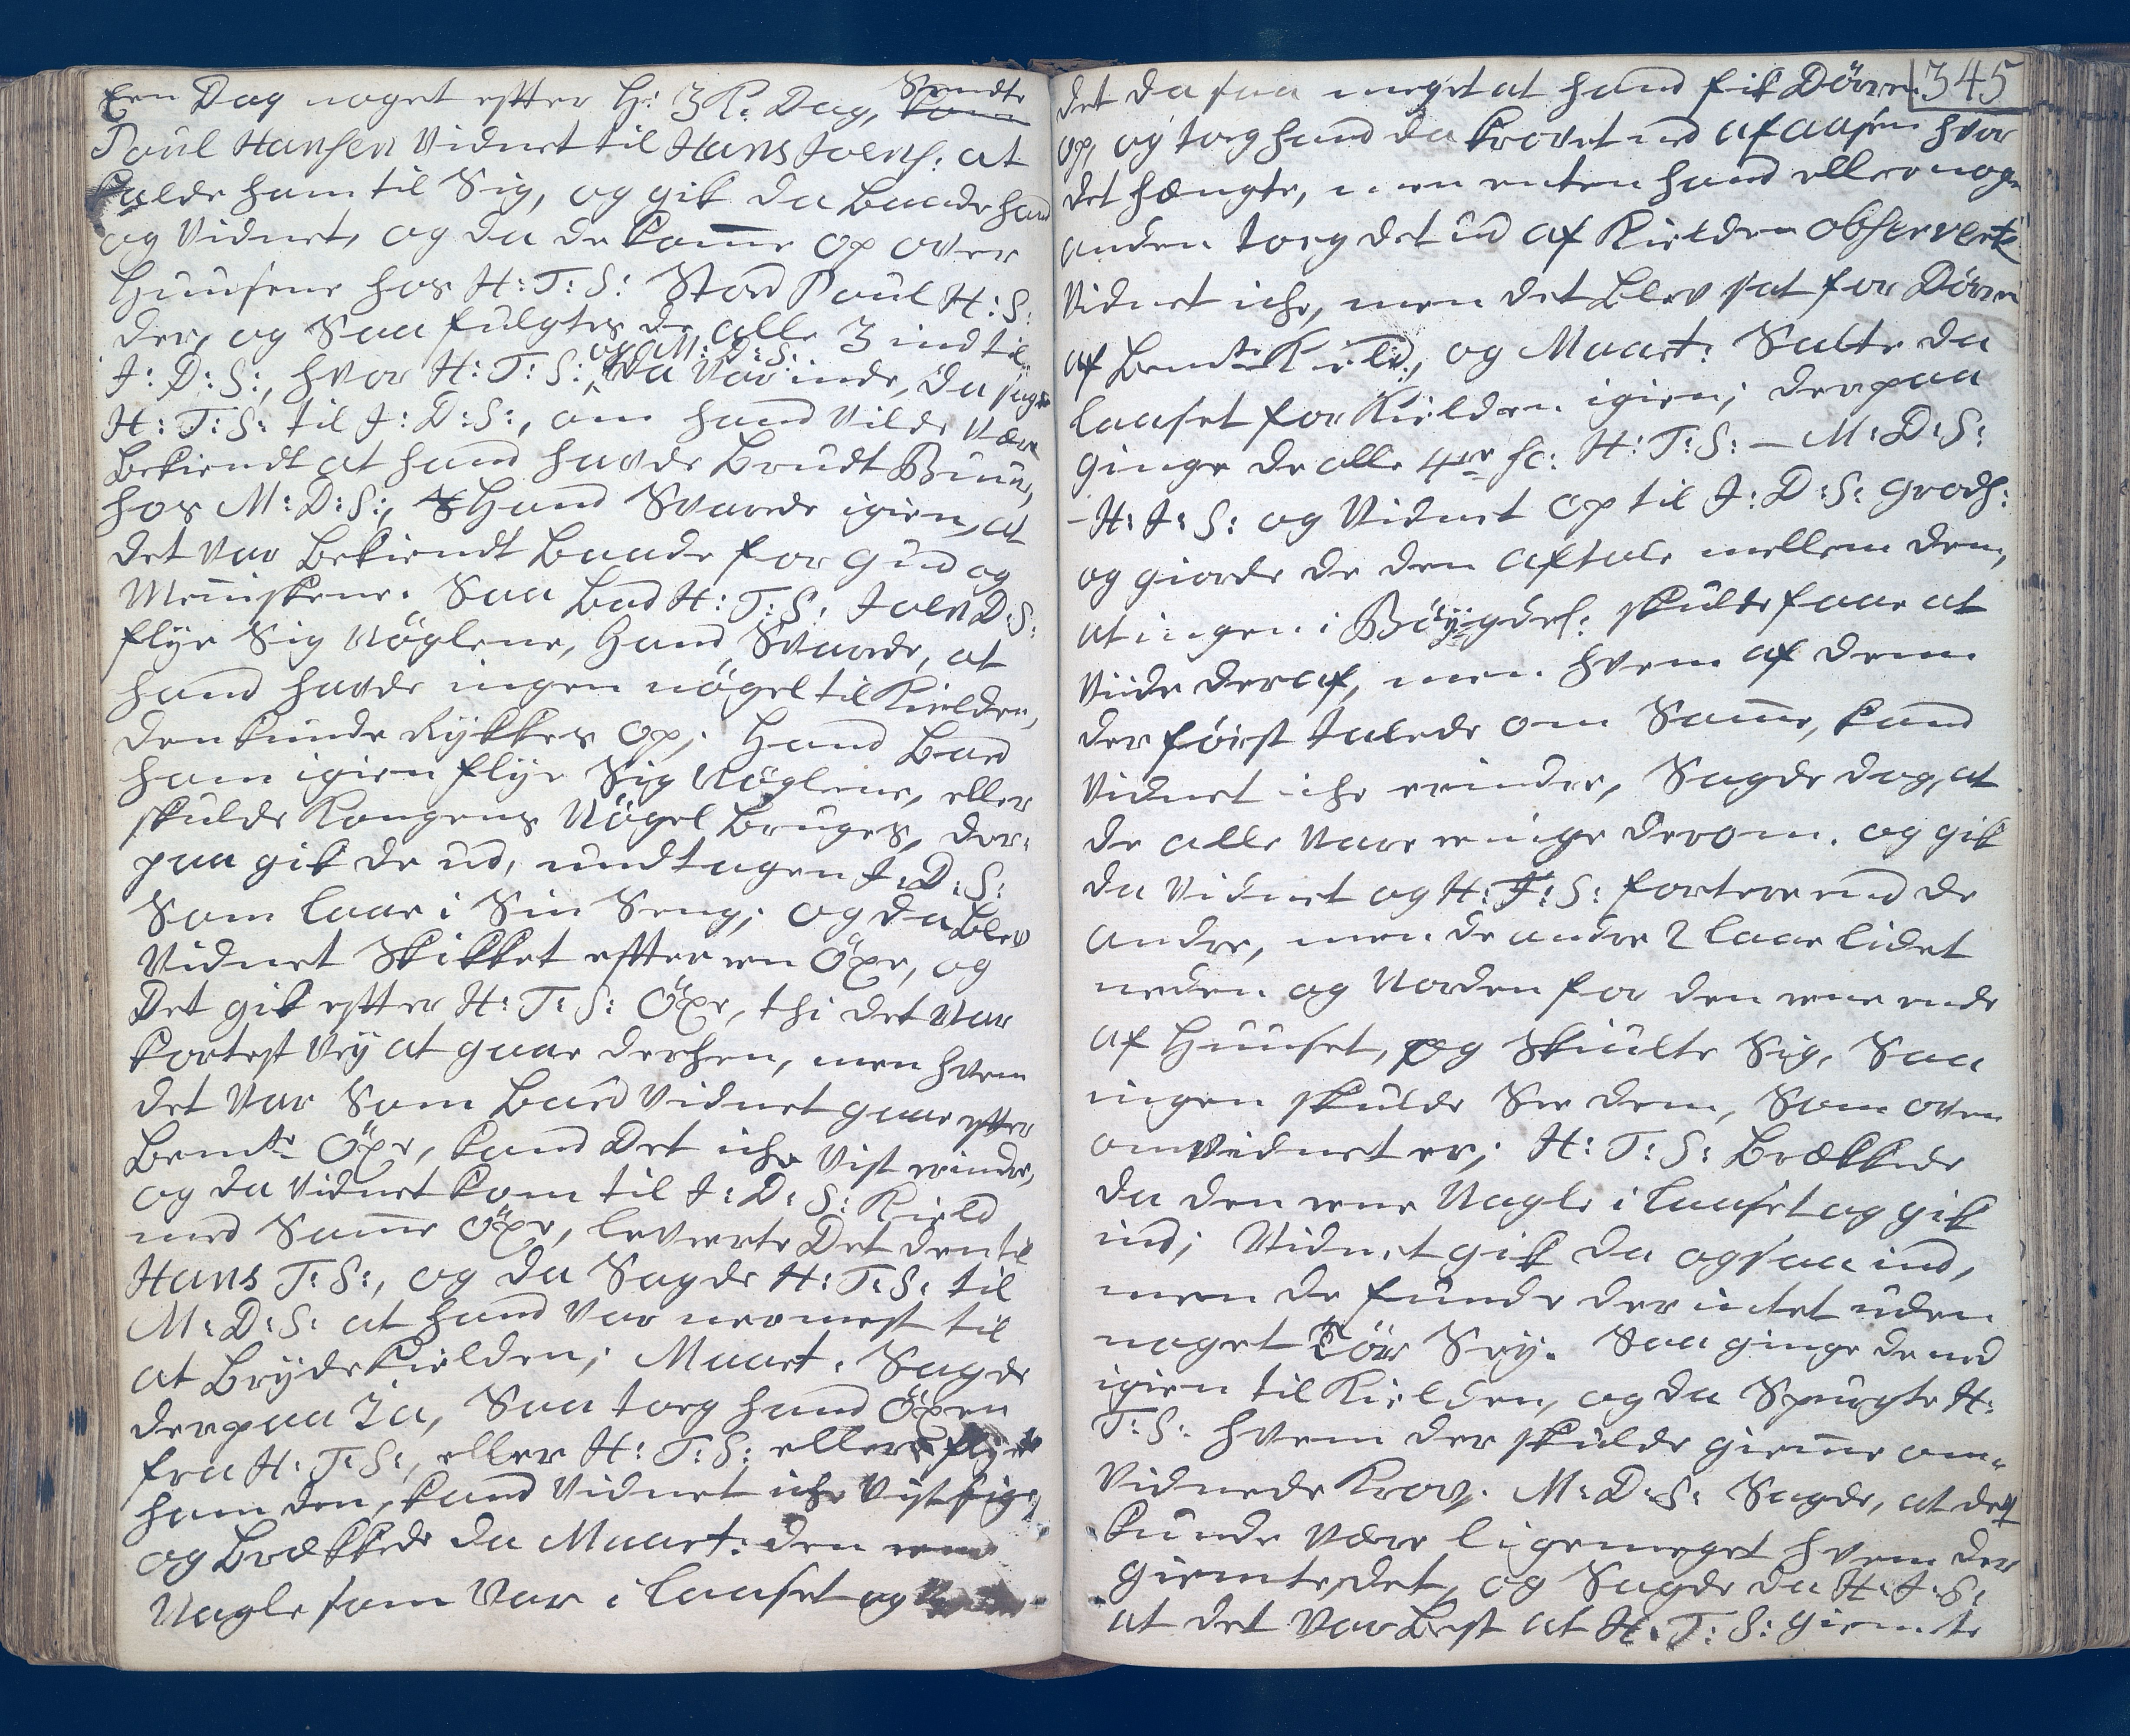 Een Dag noget efter H: 3 K: Dag, Sendte
Poul Hansen Vidnet til Hans Joens: at
kalde ham til Sig, og gik da baade hand
og Vidnet, og da de kom̅e op over
Huusene hos H: T: S: Stod Poul H: S:
der, og Saa fulgtes de alle 3 ind til
J: D: S:, hvor H: T: S: og M: D: S: da var inde, da sagde
H: T: S: til J: D: S:, om hand vilde være
bekiendt at hand havde brudt Buur,
hos M: D: S:, Hand Svarede igien, at
det var bekiendt baade for Gud og
Men̅iskene. Saa bad H: T: S: Joen D: S:
flye Sig Nöglene, Hand Svarede, at
hand havde ingen nögel til Kielden,
den kunde Rykkes op; Hand bad
ham igien flye Sig Nöglene, eller
skulde Kongens Nögel bruges, der-
paa gik de ud, undtagen J: D: S:
Som laae i Sin Seng; og da blev
Vidnet Skikket efter en Öxe, og
Det gik efter H: T: S: Öxe, thi det var
kortest Vey at gaae derhen, men hvem
det var Som bad Vidnet gaae efter
bemte Öxe, kand Det iche vist erindre,
og da Vidnet kom til J: D: S: Kield
med Sam̅e Öxe, leverte Det den til
Hans T: S:, og da Sagde H: T: S: til
M: D: S: at hand var nermest til
at bryde Kielden; Maart: Sagde
derpaa Ja, Saa toeg hand Öxen
fra H: T: S:, eller H: T: S: eller flyede
ham den, kand Vidnet iche vist sige,
og brækkede da Maart: den eene
Nagle som var i laaset og
det da saa meget at hand fik Dören 345
op, og toeg hand da Krovet ned af aasen hvor
det hængte, men enten hand eller nogen
anden toeg det ud af Kielden observerte
Vidnet iche, men det blev sat for Dören
af bemte Kield, og Maart: Satte da
laaset for Kielden igien; derpaa
ginge de alle 4re sc: H: T: S: – M: D: S:
– H: J: S: og Vidnet op til J: D: S: Grodh:
og giorde de den aftale mellem dem,
at ingen i Böygdel: skulde faae at
viide deraf, men hvem af dem
der först talede om Sam̅e, kand
Vidnet iche erindre, Sagde dog, at
de alle vare eenige derom. og gik
da Vidnet og H: T: S: fortere end de
andre, men de andre 2 laae lidet
neden og Norden for den eene ende
af Huuset, og Skiulte Sig, Saa
ingen skulde See dem, Som oven
omvidnet er; H: T: S: brækkede
da den eene Nagle i laaset og gik
ind; Vidnet gik da ogsaa ind,
men de funde der intet uden
noget Tör Sey. Saa ginge de ned
igien til Kielden, og da Spurgte H:
T: S: hvem der skulde giem̅e om-
vidnede Krov; M: D: S: Sagde, at det
kunde være ligemeget hvem der
giemte det, og Sagde da H: J: S:
at det var best at H: T: S: giemte